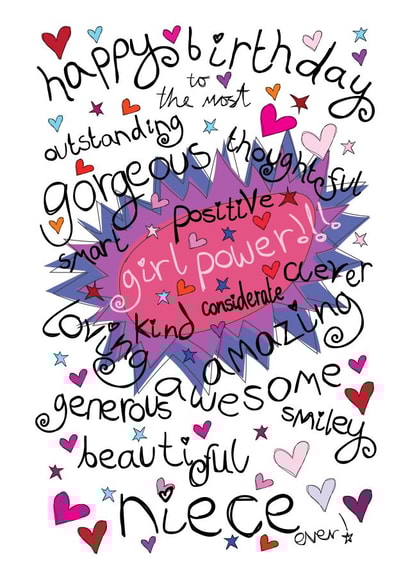 happy birthday
to
the most
outstanding
gorgeous thoughtful
positive
smart
girl power!!!
clever
considerate
kind
loving amazing
awesome
generous
smiley
beautiful
niece
ever!